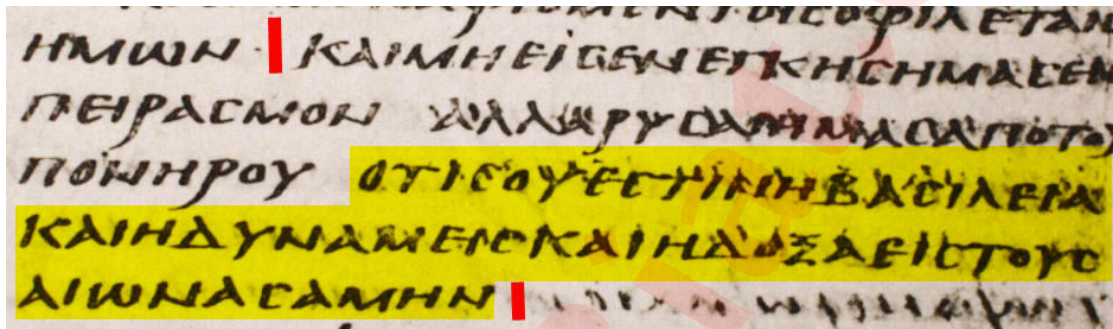 ΜΕΝΤΟΙCΟΦΙΛΕΤΑΙ
ΗΜΩΝ ΚΑΙΜΗΕΙCΕΝΕΓΚΗCΗΜΑCΕΙ
ΠΕΙΡΑCΜΟΝ ΑΛΛΑΡΥCΑΙΗΜΑCΑΠΟΤΟΥ
ΠΟΝΗΡΟΥ ΟΤΙCΟΥΕCΤΙΝΗΒΑCΙΛΕΙΑ
ΚΑΙΗΔΥΝΑΜΕΙCΚΑΙΗΔΟΞΑΕΙCΤΟΥC
ΑΙΩΝΑCΑΜΗΝ